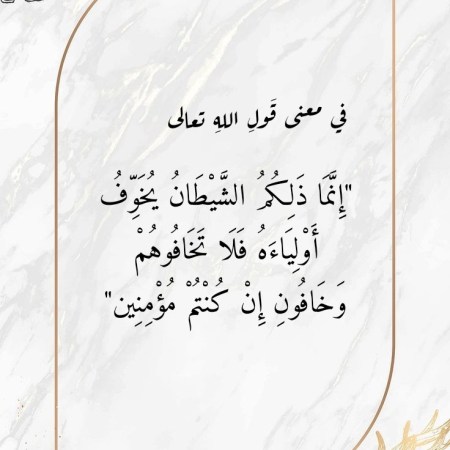 في معنى قَولِ اللهِ تعالى
"إِنَّمَا ذَلِكُمُ الشَّيْطَانُ يُخَوِّفُ
أَوْلِيَاءَهُ فَلَا تَخَافُوهُمْ
وَخَافُونِ إِنْ كُنْتُمْ مُؤْمِنِين"